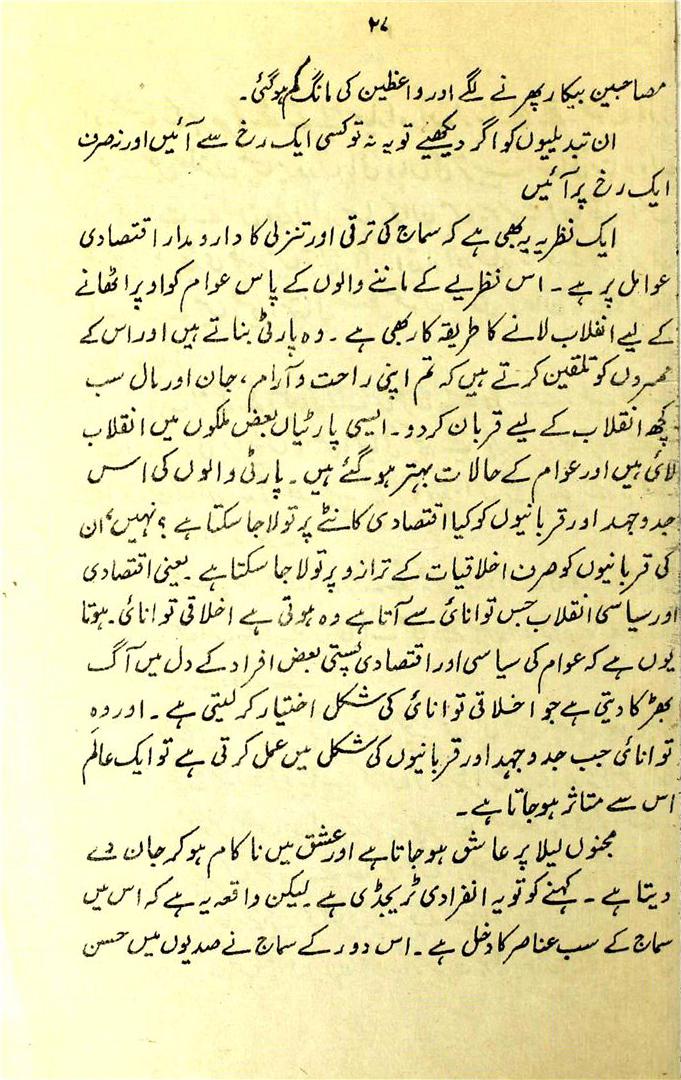 ۲۷
مصاحبین بیکار پھرنے لگے اور واعظین کی مانگ کم ہو گئی۔
ان تبدیلیوں کو اگر دیکھیے تو یہ نہ تو کسی ایک رخ سے آئیں اور نہ صرف
ایک رخ پر آئیں
ایک نظریہ یہ بھی ہے کہ سماج کی ترقی اور تنزلی کا دارومدار اقتصادی
عوامل پر ہے۔ اس نظریے کے ماننے والوں کے پاس عوام کو اوپر اٹھانے
کے لیے انقلاب لانے کا طریقہ کار بھی ہے۔ وہ پارٹی بناتے ہیں اور اس کے
ممبروں کو تلقین کرتے ہیں کہ تم اپنی راحت و آرام، جان اور مال سب
کچھ انقلاب کے لیے قربان کر دو۔ ایسی پارٹیاں بعض ملکوں میں انقلاب
لائی ہیں اور عوام کے حالات بہتر ہو گئے ہیں۔ پارٹی والوں کی اس
جدوجہد اور قربانیوں کو کیا اقتصادی کانٹے پر تولا جا سکتا ہے؟ نہیں، ان
کی قربانیوں کو صرف اخلاقیات کے ترازو پر تولا جا سکتا ہے۔ یعنی اقتصادی
اور سیاسی انقلاب جس توانائی سے آتا ہے وہ ہوتی ہے اخلاقی توانائی۔ ہوتا
یوں ہے کہ عوام کی سیاسی اور اقتصادی پستی بعض افراد کے دل میں آگ
بھڑکا دیتی ہے جو اخلاقی توانائی کی شکل اختیار کر لیتی ہے۔ اور وہ
توانائی جب جدوجہد اور قربانیوں کی شکل میں عمل کرتی ہے تو ایک عالَم
اس سے متاثر ہو جاتا ہے۔
مجنوں لیلا پر عاشق ہو جاتا ہے اور عشق میں ناکام ہو کر جان دے
دیتا ہے۔ کہنے کو تو یہ انفرادی ٹریجڈی ہے لیکن واقعہ یہ ہے کہ اس میں
سماج کے سب عناصر کا دخل ہے۔ اس دور کے سماج نے صدیوں میں حسن